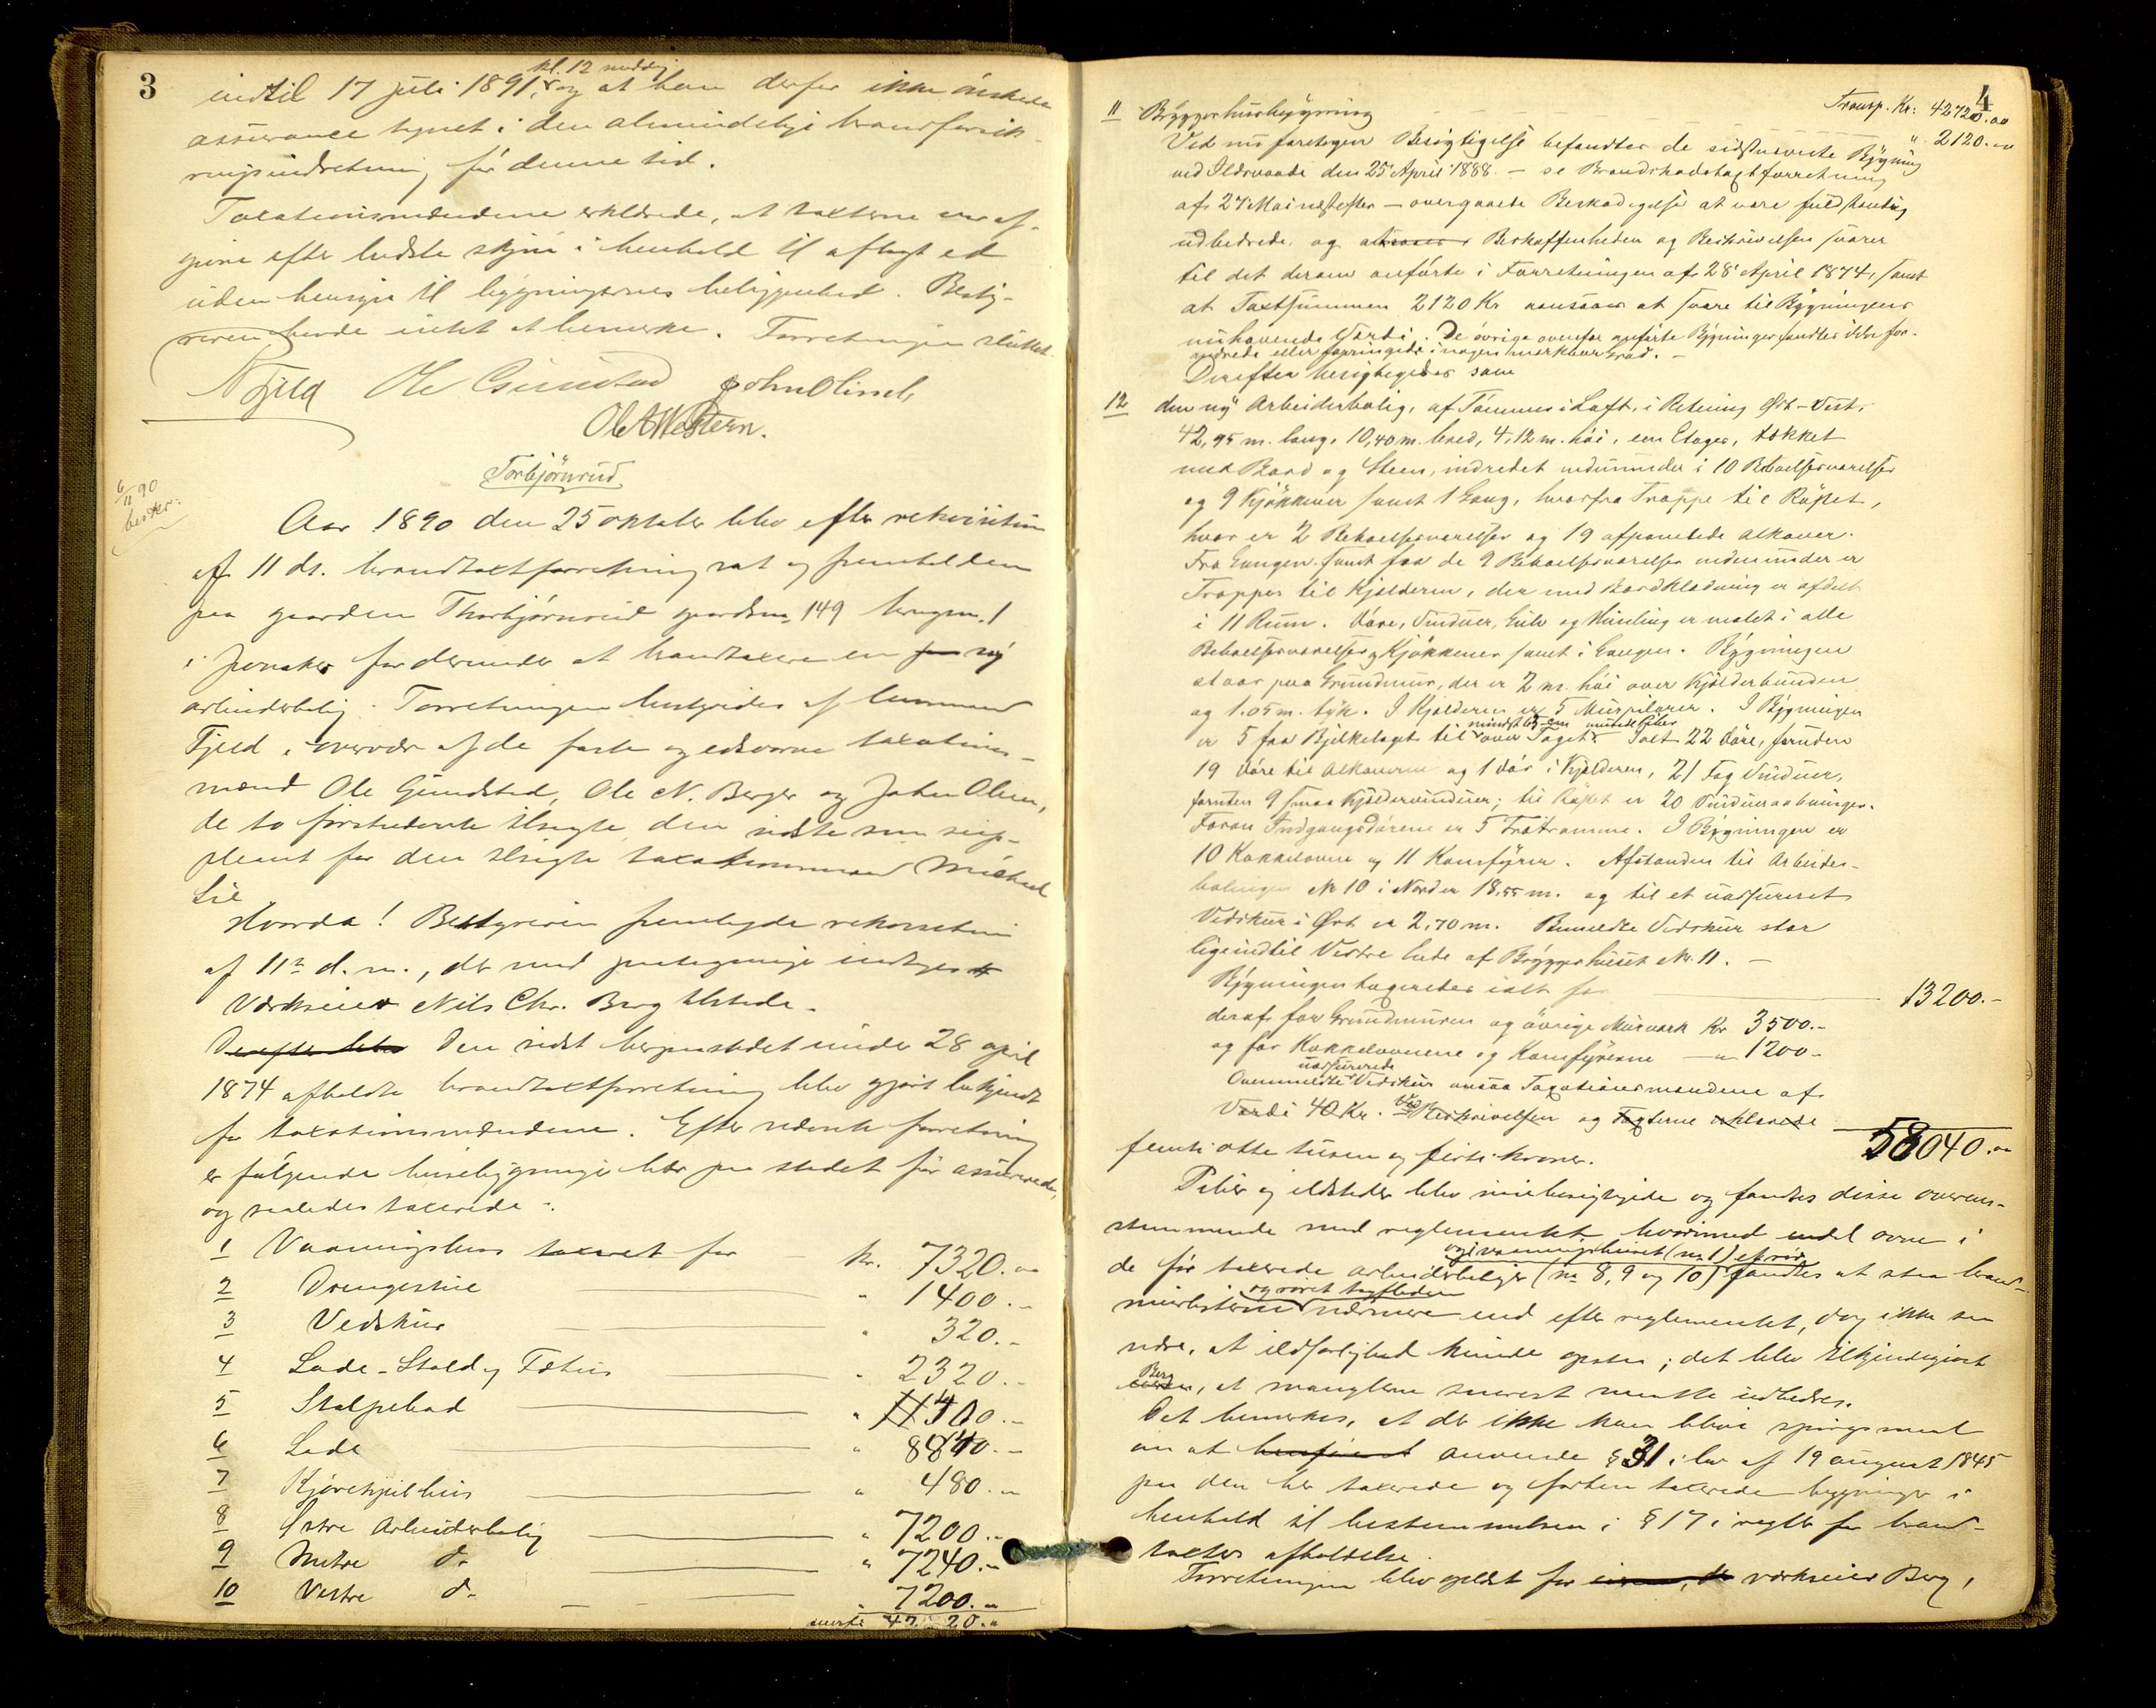 3
kl. 12 middag
indtil 17 juli 1891, og at han derfor ikke ønskede
assurance tegnet i den almindelige brandforsik-
ringsindretning før denne tid.
Taxationsmændene erklærede, at taxterne var af-
givne efter bedste skjøn i henhold til aflagt ed
uden hensyn til bygningernes beliggenhed. Besty-
reren havde intet at bemerke. Forretningen sluttet.
N Fjeld Ole Gundstad John Olsen
Ole A Western.
Torbjørnrud
6/11 90
beskr.
Aar 1890 den 25 oktober blev efter rekvisition
af 11 ds. brandtaxtforretning sat og fremholden
paa gaarden Thorbjørnrud gaardsno 149 brugsno. 1
i Jevnaker for derunder at brandtaxere en ny
arbeiderbolig. Forretningen bestyredes af lensmand
Fjeld i overvær af de faste og edsvorne taxations-
mænd Ole Gundstad, Ole N. Berger og John Olsen,
de to førstnævnte tilsagte, den sidste som sup-
pleant for den tilsagte taxationsmand Mikkel
Lie
Hvorda! Bestyreren fremlagde rekvisition
af 11te d. m., der med paategning indtages
Værkseier Nils Chr. Berg tilstede.
Derefter blev Den sidst herpaastedet under 28 april
1874 afholdte brandtaxtforretning blev gjort bekjendt
for taxationsmændene. Efter nævnte forretning
er følgende husebygninger her paa stedet før assurerede,
og saaledes taxerede:
1 Vaaningshus taxeret for kr. 7320.00
2 Drengestue " 1400.-
3 Vedskur " 320.-
4 Lade-Stald og Fæhus " 2320.-
5 Stolpebod "
6 Lade " 8840.-
7 Kjøreskjulhus " 480.-
8 Østre Arbeiderbolig " 7200.-
9 Mitre do " 7240.-
10 Vestre do " 7200.-
42720.-
4
Transp. Kr: 42720.00
11 Bryggerhusbygning " 2120.00
Ved nu foretagen Besigtigelse befandtes de sidstnævnte Bygning
ved Ildsvaade den 25de April 1888 - se Brandskadetaxtforretning
af 27 Mai næstefter - overgaaede Beskadigelse at være fuldstændig
udbedrede, og at Beskaffenheden og Beskrivelsen svarer
til det derom anførte i Forretningen af 28 April 1874, samt
at Taxtsummen 2120 Kr ansaaes at svare til Bygningens
nuhavende Værdi. De øvrige ovenfor anførte Bygninger fandtes ikke for-
andrede eller forringede i nogen mærkbar Grad. -
Derefter besigtigedes som
12 den ny Arbeiderbolig, af Tømmer i Laft, i Retning Øst-Vest,
42,95 m. lang, 10,40 m. bred, 4,12 m. høi, een Etager, tækket
med Bord og Steen, indredet nedenunder i 10 Beboelsesværelser
og 9 Kjøkkener samt 1 Gang, hvorfra Trappe til Røstet,
hvor er 2 Beboelsesværelser og 19 afpanelede Alkover.
Fra Gangen samt fra de 9 Beboelsesværelser nedenunder er
Trapper til Kjelderen, der med Bordklædning er afdelt
i 11 Rum. Døre, Vinduer, Gulv og Himling er malet i alle
Beboelsesværelser og Kjøkkener samt i Gangen. Bygningen
staar paa Grundmur, der er 2 m. høi over Kjelderbunden
og 1.05 m. tyk. I Kjelderen er 5 Murpilarer. I Bygningen
mindst 65 cm murede Piber
er 5 fra Bjelkelaget til over Taget. Ialt 22 Døre, foruden
19 Døre til Alkoverne og 1 Dør i Kjelderen, 21 Fag Vinduer,
foruden 9 smaa Kjeldervinduer; til Røstet er 20 Vinduesaabninger.
Foran Indgangsdørene er 5 Trætramme. I Bygningen er
10 Kakkelovne og 11 Komfyrer. Afstanden til Arbeider-
boligen No 10 i Nord er 18,55 m. og til et uassureret
Vedskur i Øst er 2,70 m. Bemeldte Vedskur staar
ligeindtil Vestre Ende af Bryggerhuset No. 11. -
Bygningen taxeredes ialt for 13200.-
deraf for Grundmuren og øvrige Murværk Kr 3500.-
og for Kakkelovnene og Komfyrerne - " 1200-
uassurerede
Ovenmeldte Vedskur ansaa Taxationsmændene af
Værdi 40 Kr. Ved Beskrivelsen og Taxterne erklærede
58040.00
femti otte tusen og firti kroner.
Piber og ildsteder blev nu besigtigede og fandtes disse overens-
stemmende med reglementet, hvorimod endel ovne i
og i vaaningshuset (no 1) et rør
de før taxerede arbeiderboliger (no 8, 9 og 10) fandtes at staa brand-
og røret tagfladen
murlisterne nærmere end efter reglementet, dog ikke saa
nære, at ildsfarlighed kunde opstaa; det blev tilkjendegivet
Berg
eieren, at manglerne snarest maatte udbedres.
Det bemerkes, at der ikke kan blive spørgsmaal
om at anvende § 31 i lov af 19 august 1845
paa den her taxerede og forhen taxerede bygninger i
henhold til bestemmelsen i § 17 i reglt for brand-
taxters afholdelse.
Forretningen blev oplæst for eieren, der værkseier Berg,